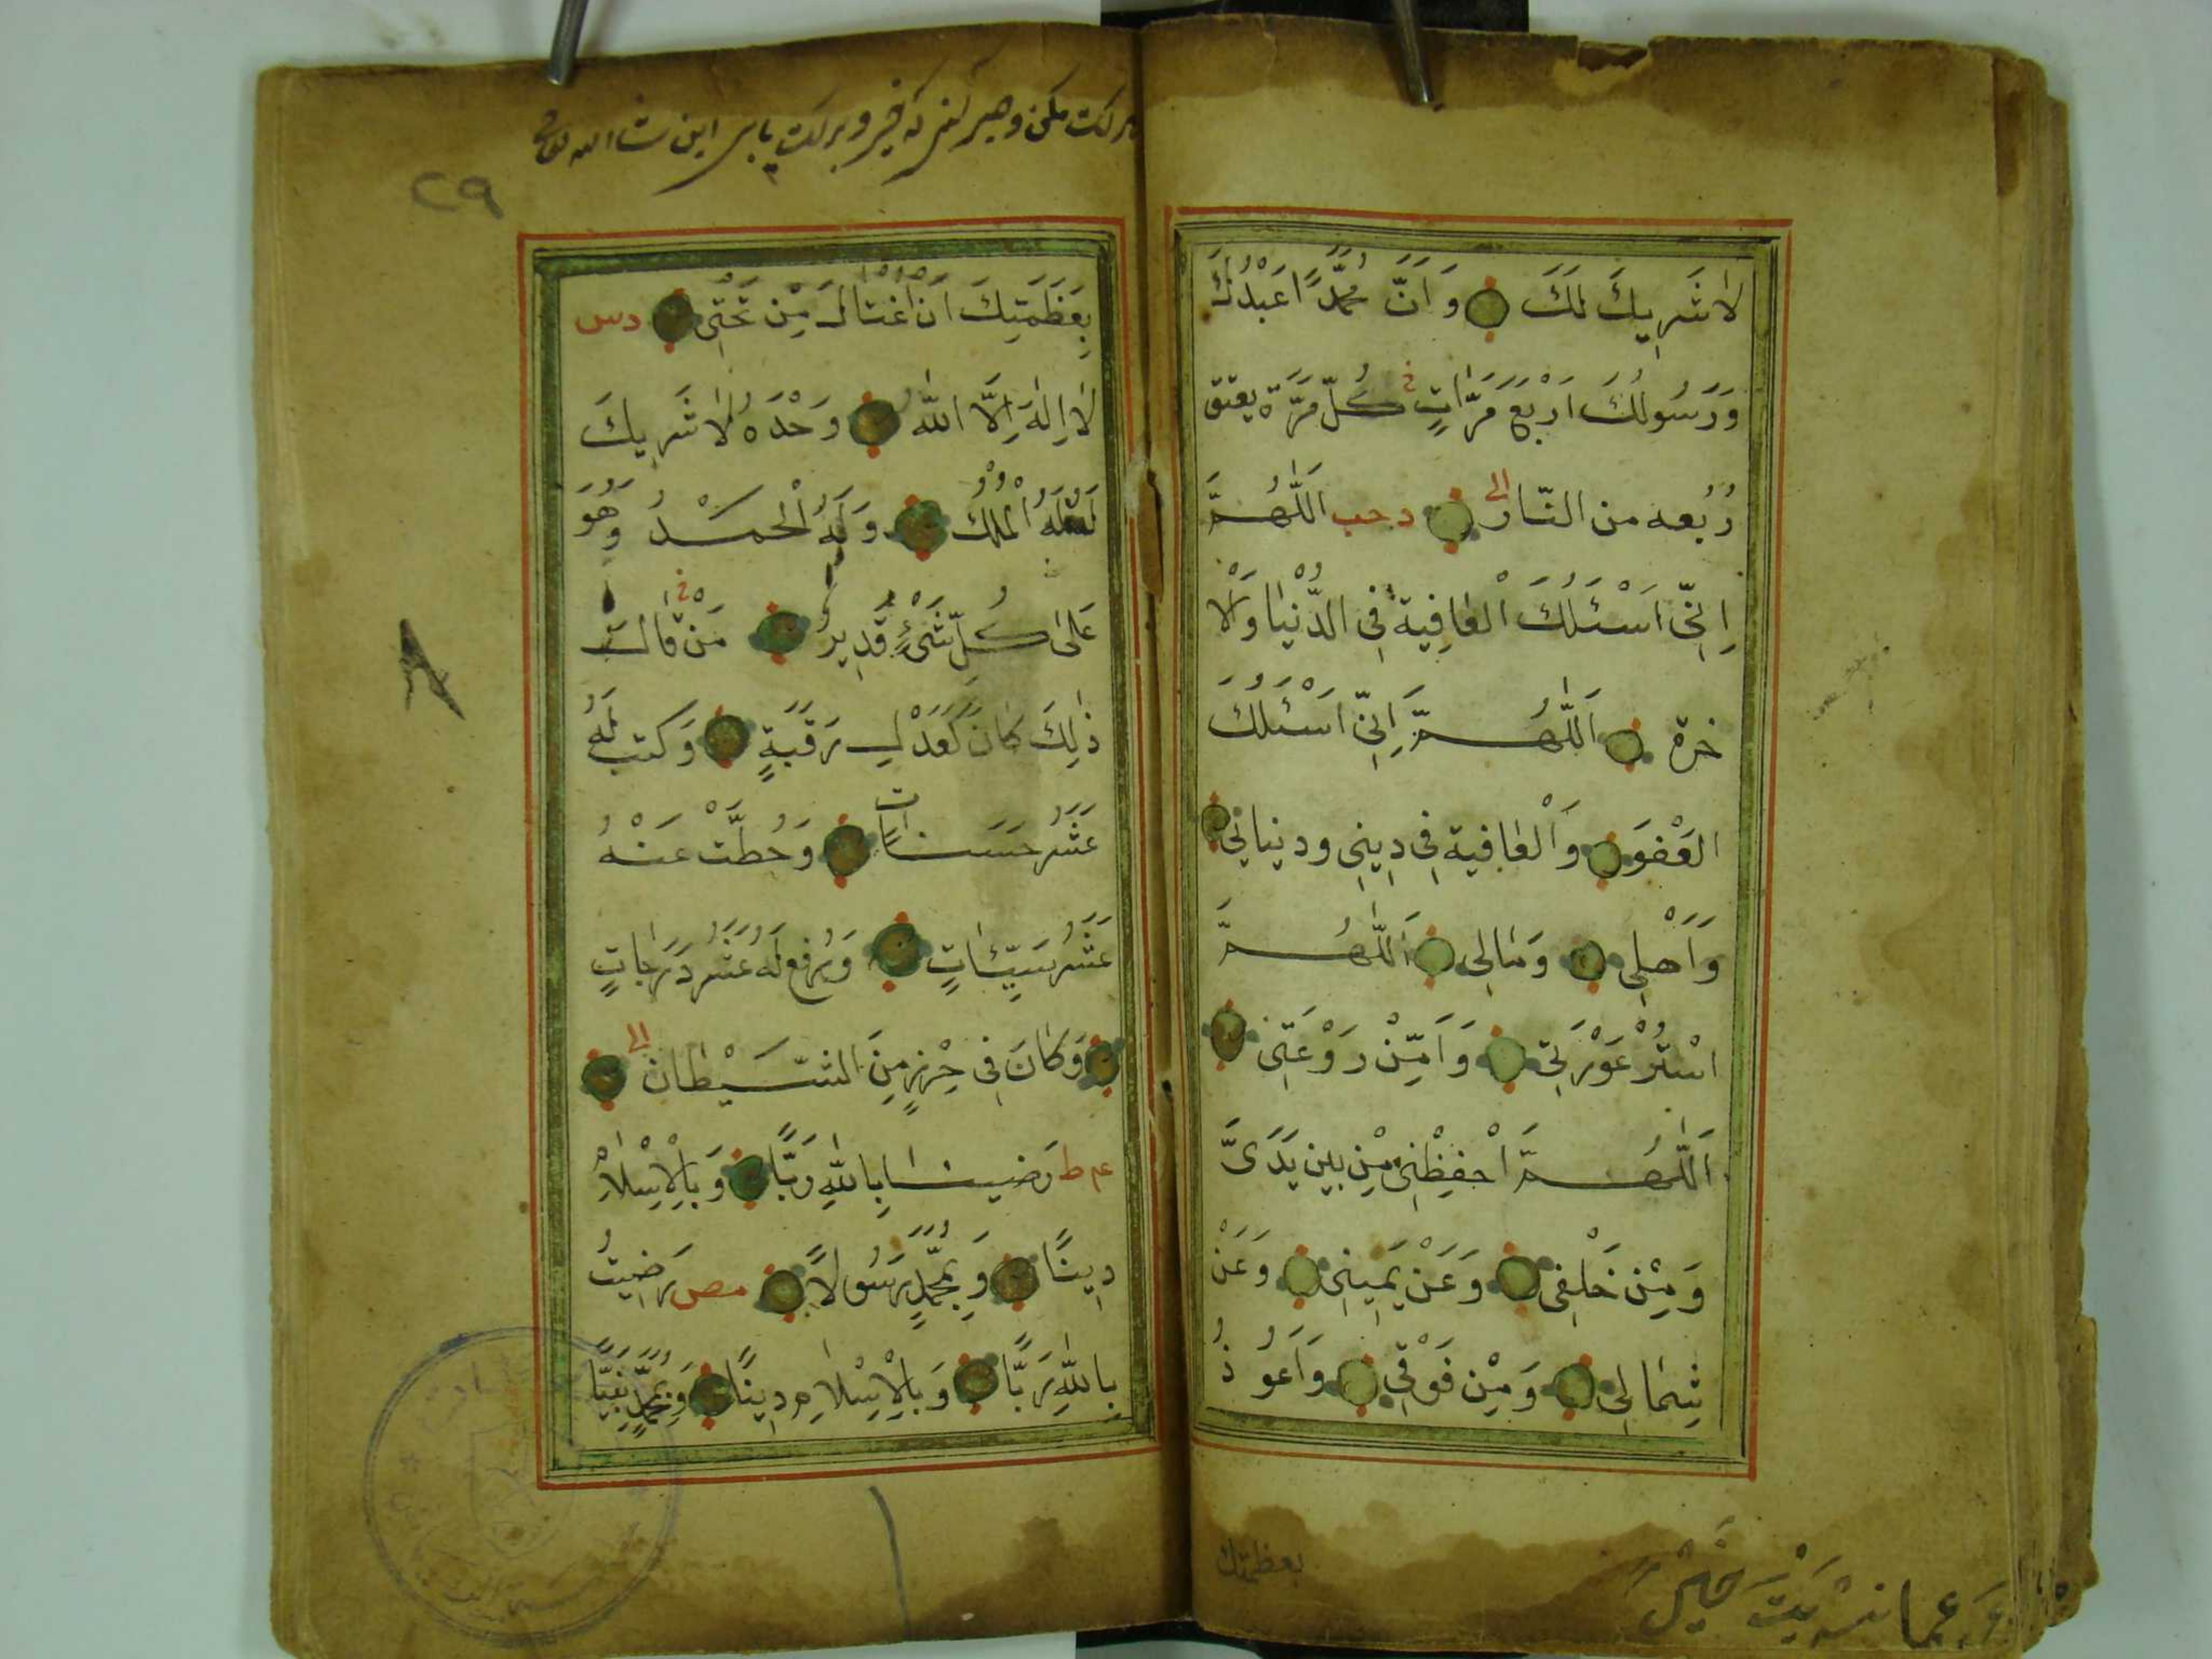 لَا شَرِيكَ لَكَ وَاَنَّ مُحَمَّدًا عَبْدُكَ
وَرَسُولُكَ اَرْبَعَ مَرَّاتٍ كُلَّ مَرَّةٍ يعتق
رُبُعه من النّار الى د حب اَللّٰهُمَّ
اِنِّي اَسْئَلُكَ الْعَافِيةَ فِى الدُّنْيَا وَالْا
خرة اَللّٰهُمَّ اِنِّي اَسْئَلُكَ
العَفْوَ وَالْعَافِية فِى دِينِى ودنياي
وَاَهْلِى وَمَالِى اَللّٰهُمَّ
اسْتُرْ عَوْرَتِى وَاَمِّنْ رَوْعَتِى
اَللّٰهُمَّ احْفِظْنِى مِنْ بين يَدَىَّ
وَمِنْ خَلْفِى وَعَنْ يَمِينِى وَعَنْ
شِمَالِى وَمِنْ فَوْقِى وَاَعُوذُ
بعظمتك
٢٩
بِعَظَمَتِكَ اَنْ اُغْتَالَ مِنْ تَحْتِى دس
لَا اِلٰهَ اِلَّا اللّٰهُ وَحْدَهُ لَا شَرِيكَ
لَهُ لَهُ الْمُلْكُ وَلَهُ الْحَمْدُ وَهُوَ
عَلٰى كُلِّ شَىْءٍ قَدِيرٌ مَنْ قَالَ
ذٰلِكَ كَانَ كَعَدْلِ رَقَبَةٍ وَكتب لَهُ
عَشْرُ حَسَنَاتٍ وَحُطَّتْ عَنْهُ
عَشْرُ سَيِّئَاتٍ وَرُفِعَ لَهُ عَشْرُ دَرَجَاتٍ
وَكَانَ فِى حِرْزٍ مِنَ الشَّيْطَانِ الى
عم ط رَضِينَا بِاللّٰهِ رَبًّا وَبِالْاِسْلَامِ
دِينًا وَبِمُحَمَّدٍ رَسُولًا مص رَضِيتُ
بِاللّٰهِ رَبًّا وَبِالْاِسْلَامِ دِينًا وَبِمُحَمَّدٍ نَبِيًّا